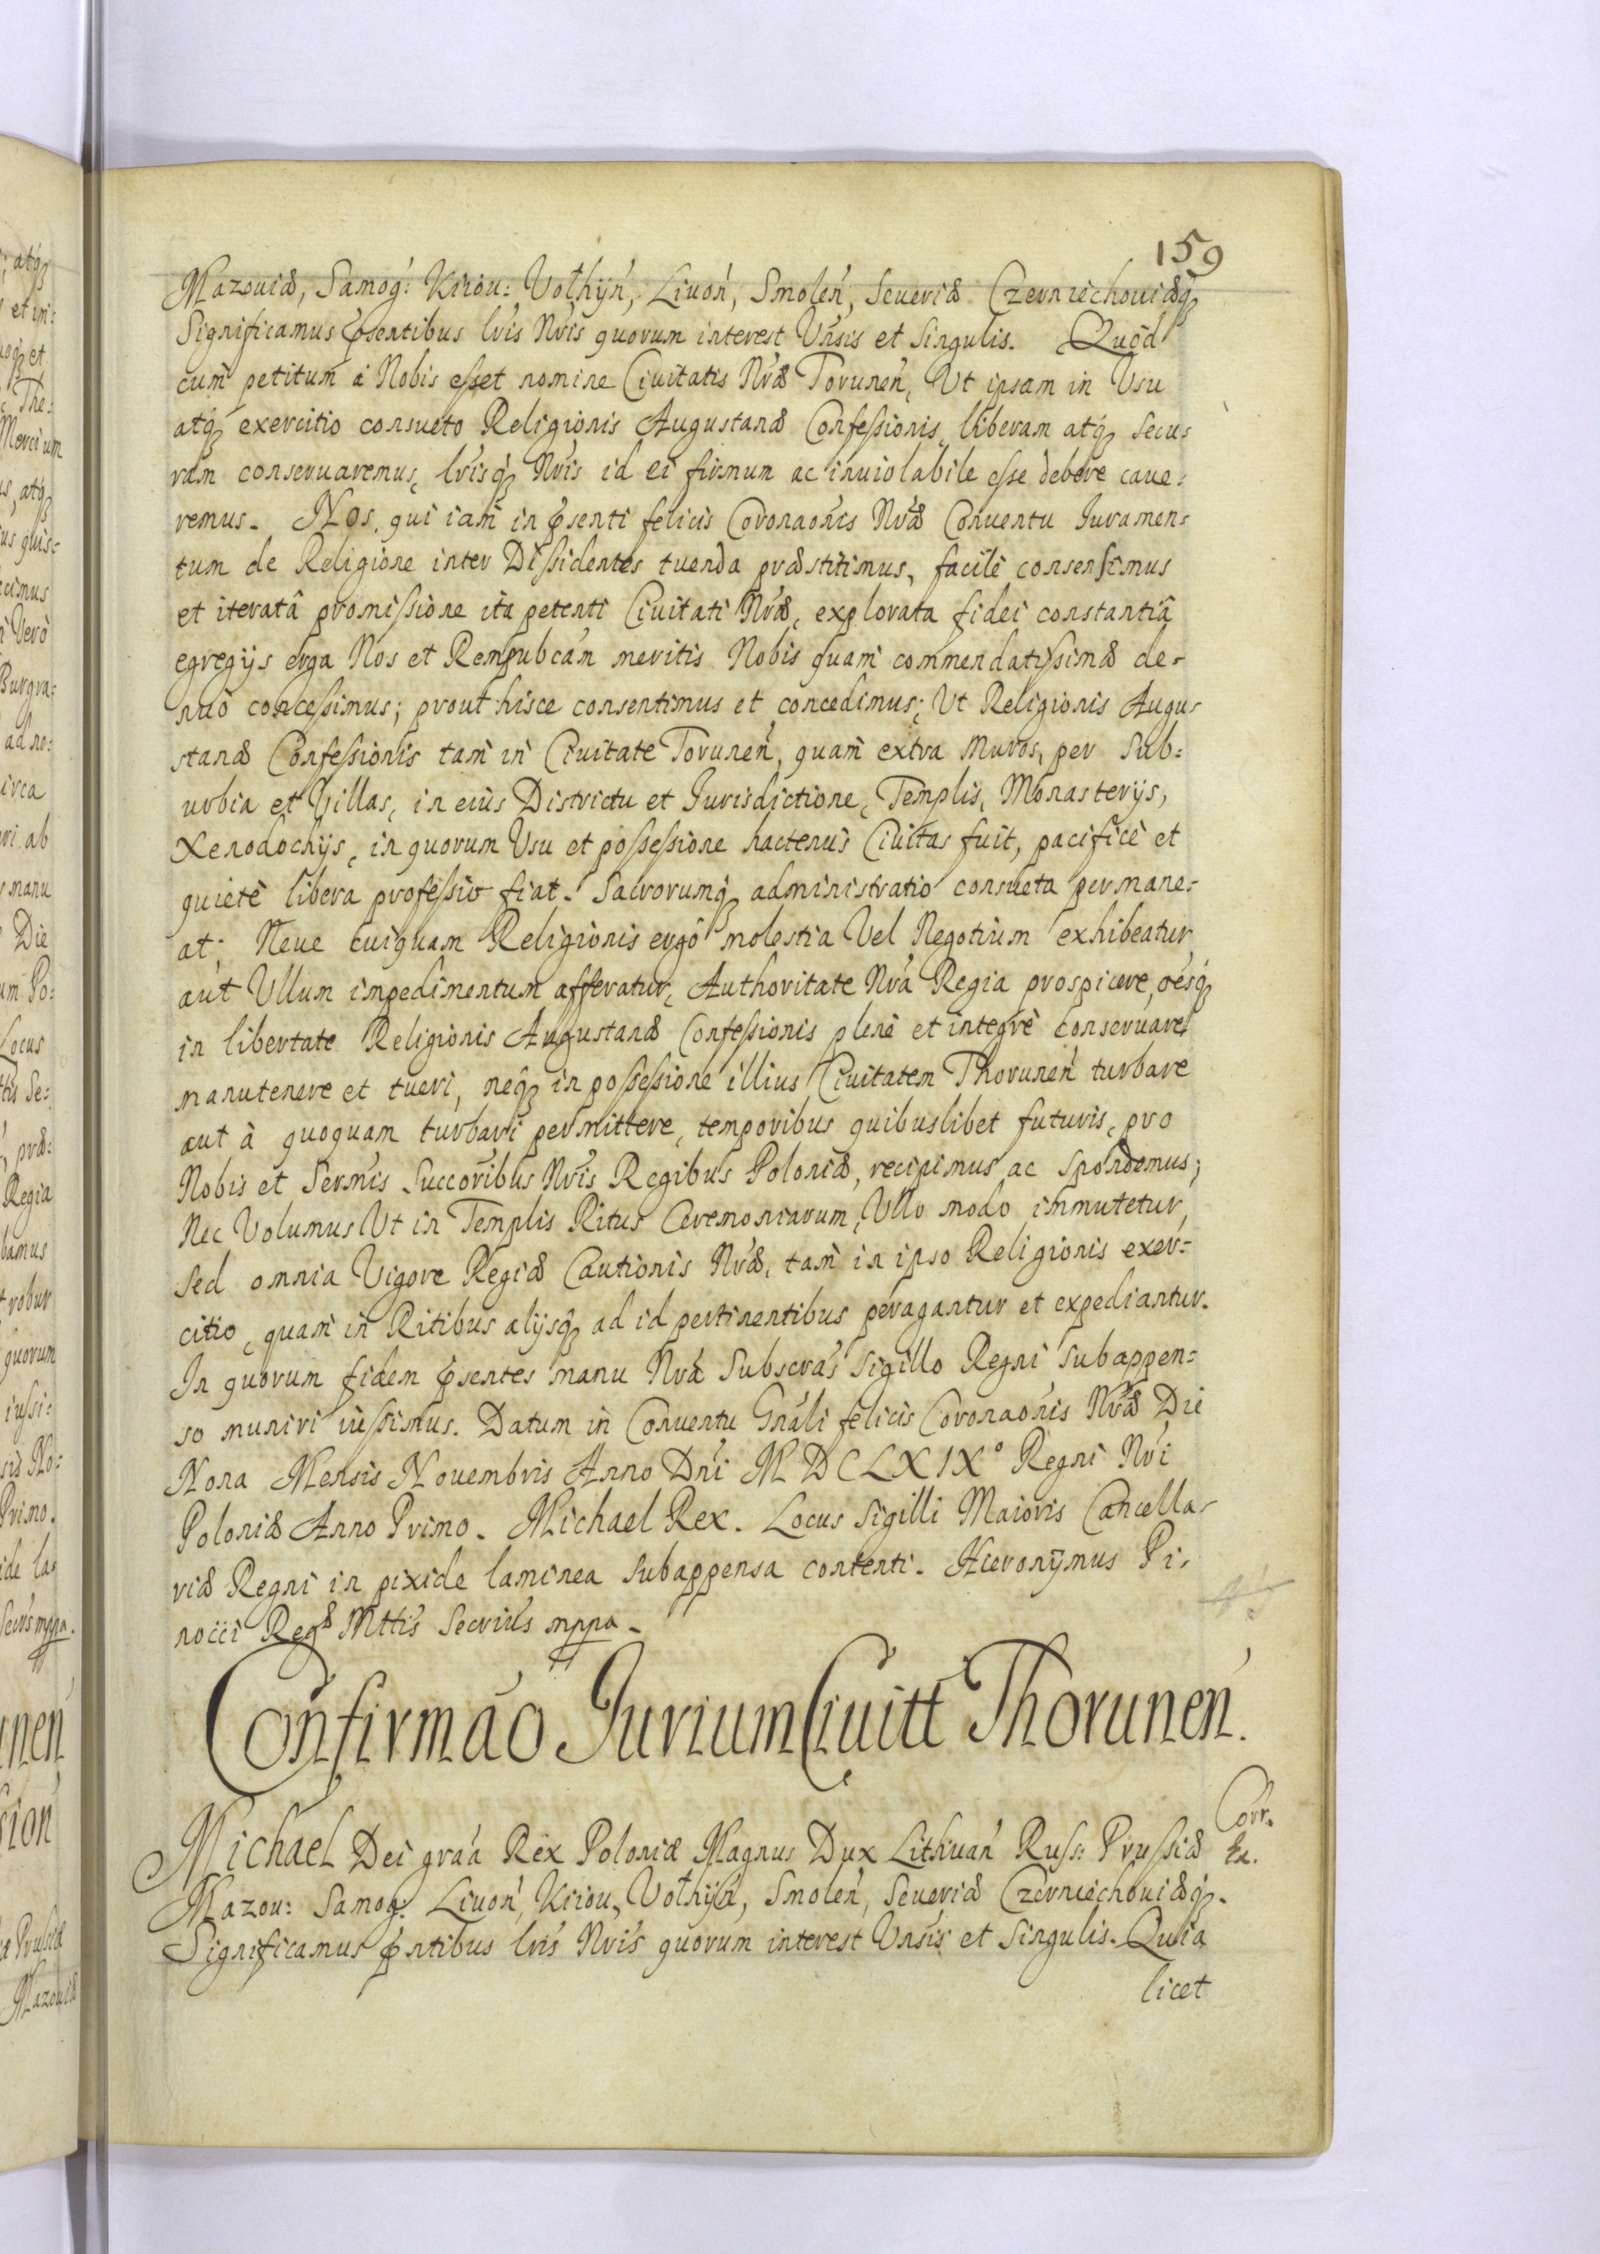 159
Mazouiæ, Samog: Kiiou: Vołhÿń, Liuoń, Smoleń, Seueriæ Czerniechouiæq́
Significamus p̃sentibus lr̃is Nr̃is quorum interest Vñsis et singulis. Quòd
cum petitum à Nobis esset nomine Ciuitatis Nr̃æ Toruneń, Vt ipsam in Vsu
atq́ exercitio consueto Religionis Augustanæ Confessionis, liberam atq́ secu-
ram conseruaremus, lr̃isq́ Nr̃is id ei firmum ac inuiolabile esse debere caue-
remus. Nos qui iam in p̃senti felicis Coronaõnis Nr̃æ Conuentu Juramen-
tum de Religione inter Dissidentes tuenda præstitimus, facilè consensimus
et iteratâ promissione ita petenti Ciuitati Nr̃æ, explorata fidei constantiâ
egregijs erga Nos et Rempubcam meritis Nobis quam commendatissimæ de-
nuò concessimus; prout hisce consentimus et concedimus; Vt Religionis Augu-
stanæ Confessionis tam in Ciuitate Toruneń, quam extra muros, per Sub-
urbia et Villas, in eius Districtu et Jurisdictione, Templis, Monasterijs,
Xenodochijs, in quorum Vsu et possessione hactenus Ciuitas fuit, pacificè et
quietè libera professio fiat. Sacrorumq́ administratio consueta permane-
at; Neue cuiquam Religionis ergô molestia Vel Negotium exhibeatur
aut Vllum impedimentum afferatur, Authoritate Nr̃a Regia prospicere, oẽsq́
in libertate Religionis Augustanæ Confessionis plenè et integrè conseruare
manutenere et tueri, neq́ in possessione illius Ciuitatem Thoruneń turbare
aut à quoquam turbari permittere, temporibus quibuslibet futuris, pro
Nobis et Serm̃is Succoribus Nr̃is Regibus Poloniæ, recipimus ac spondemus;
Nec Volumus Vt in Templis Ritus Ceremoniarum, Vllo modo immutetur,
sed omnia Vigore Regiæ Cautionis Nr̃æ, tam in ipso Religionis exer-
citio, quam in Ritibus alijsq́ ad id pertinentibus peragantur et expediantur.
In quorum fidem p̃sentes manu Nr̃a Subscrãs sigillo Regni subappen-
so muniri iussimus. Datum in Conuentu Gnãli felicis Coronaõnis Nr̃æ Die
Nona Mensis Nouembris Anno Dñi MDCLXIX° Regni Nr̃i
Poloniæ Anno Primo. Michael Rex. Locus sigilli Maioris Cancella-
riæ Regni in pixide laminea subappensa contenti. Hieronÿmus Pi-
nocci Regæ Mttis Secrius mppa.
Confirmaõ Jurium Ciuitt Thoruneń.
Corr.
Michael Dei graã Rex Poloniæ Magnus Dux Lithuań Russ: Prussiæ
Mazou: Samog: Liuoń, Kiiou, Vołhÿń, Smoleń, Seueriæ Czerniechouiæq́.
Significamus p̃ntibus lr̃is Nr̃is quorum interest Vñsis et singulis. Quia
licet